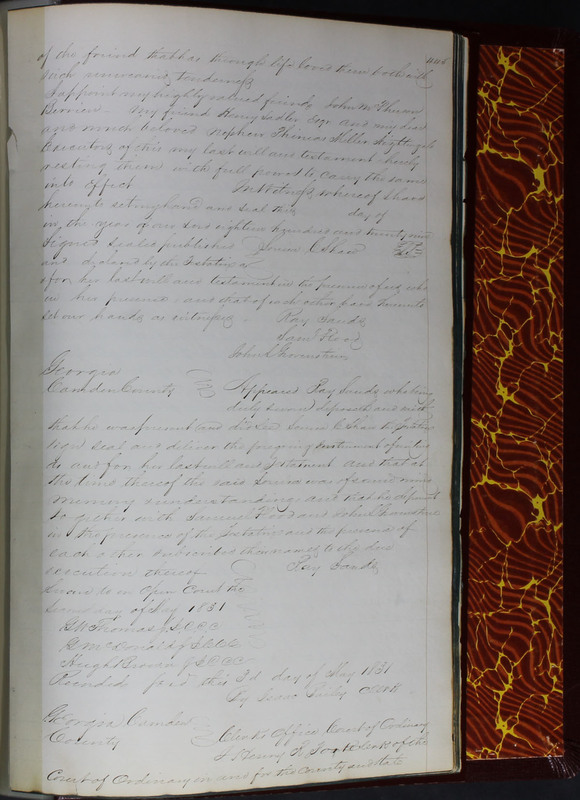 446
of the friend that has through life loved them both with
such unwearied tenderness
I appoint my highly valued friends John McPherson
Berrien — My friend Henry Sadler Esqr and my dear
and much beloved nephew Phineas Miller Nightingale
Executors of this my last will and testament hereby
vesting them with full power to carry the same
into effect In Witness whereof I have
hereunto set my hand and seal this day of
in the year of our Lord eighteen hundred and twenty nine
Signed sealed published Louisa C Shaw
and declared by the Testatrix as
& for her last will and testament in the presence of us, who
in her presence and that of each other have hereunto
set our hands as witnesses. Ray Sands
Saml Flood
John
Georgia
Camden County Appeared Ray Sands who being
duly sworn deposeth and saith
that he was present and did see Louisa C Shaw the Testatrix
sign seal and deliver the foregoing instrument of writing
as and for her last will and Testament and that at
the time thereof the said Louisa was of sound mind
memory & understanding and that he deponent
together with Samuel Flood and John
in the presence of the Testatrix and the presence of
each other subscribed their names to the due
execution thereof Ray Sands
Sworn to in Open Court the
Second day of May 1831
G W Thomas J.I.C.C.C
G McDonald J.I.C.C.C
Hugh Brown J.I.C.C.C
Recorded this 3d day of May 1831
By Isaac Bailey
Georgia Camden
County Clerks Office Court of Ordinary
I Henry R Clerk of the
Court of Ordinary in and for the County and State